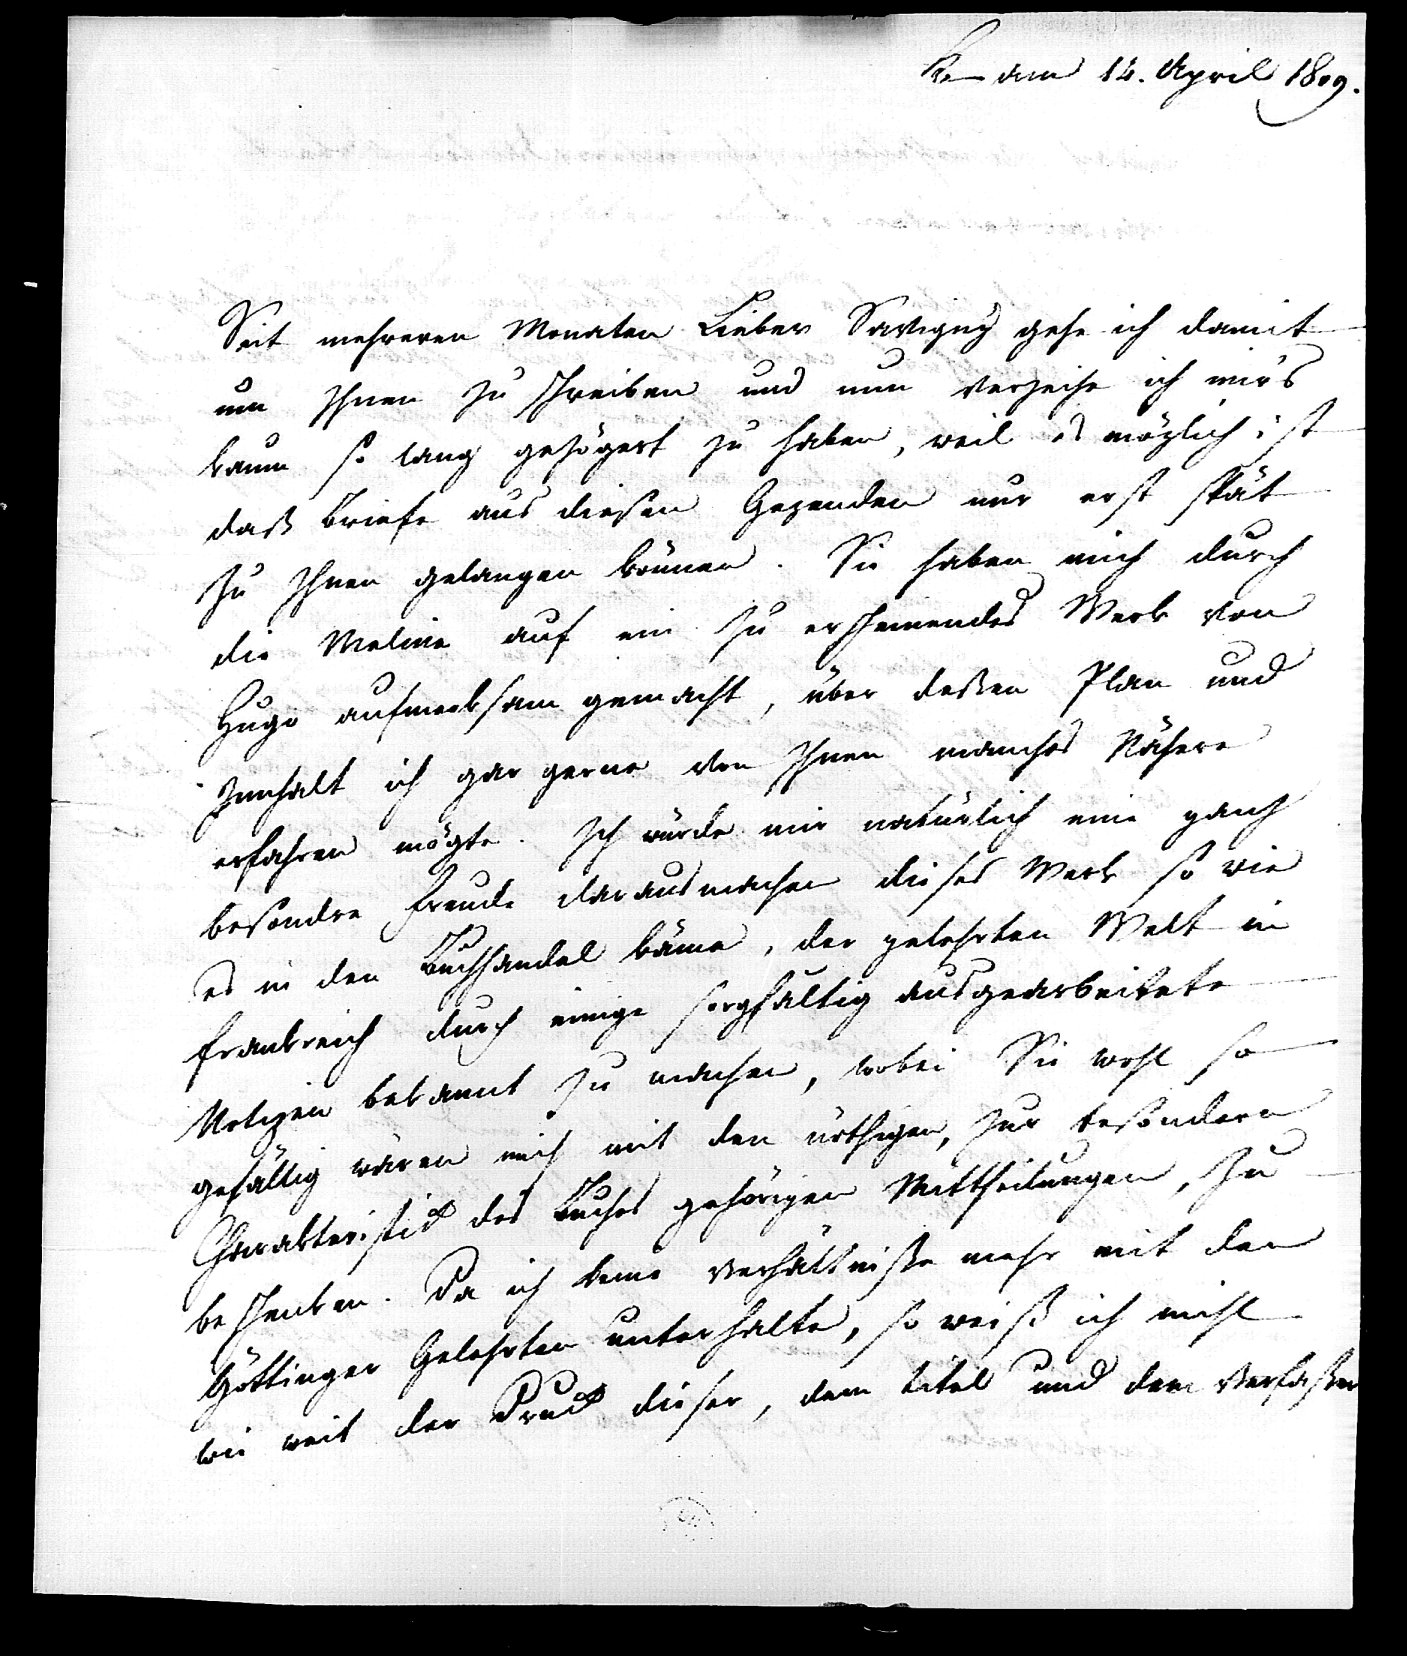 am 14. April 1809.
Seit mehreren Monaten Lieber Savigny gehe ich damit
um Ihnen zu schreiben und nun verzeihe ich mir's
kaum so lang gezögert zu haben, weil es möglich ist
daß Briefe aus diesen Gegenden nur erst spät
zu Ihnen gelangen können. Sie haben mich durch
die Meline auf ein zu erscheinendes Werk von
Hugo aufmerksam gemacht, über deßen Plan und
Innhalt ich gar gerne von Ihnen manches Nähere
erfahren mögte. Ich würde mir natürlich eine ganz
besondre Freude daraus machen dieses Werk so wie
es in den Buchhandel käme, der gelehrten Welt in
Frankreich durch einige sorgfältig ausgearbeitete
Notizen bekannt zu machen, wobei Sie wohl so
gefällig wären mich mit den nöthigen, zur besondern
Charakteristick des Buches gehörigen Mittheilungen, zu
beschenken. Da ich keine Verhältniße mehr mit den
Göttinger Gelehrten unterhalte, so weiß ich nicht
wie weit der Druck dieser, dem Titel und dem Verfaßer